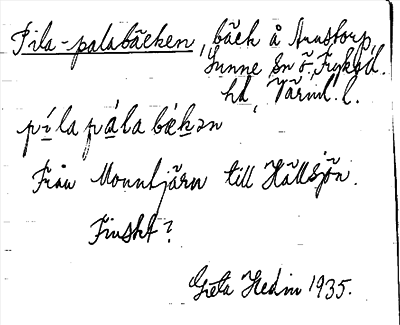 Pila-palabäcken, bäck å Arnstorp,
Sunne sn ö., Fryksd.
hd, Värml. l.
pìla pàla bækən
Från Monntjärn till Hällsjön.
Finskt?
Greta Hedin 1935.